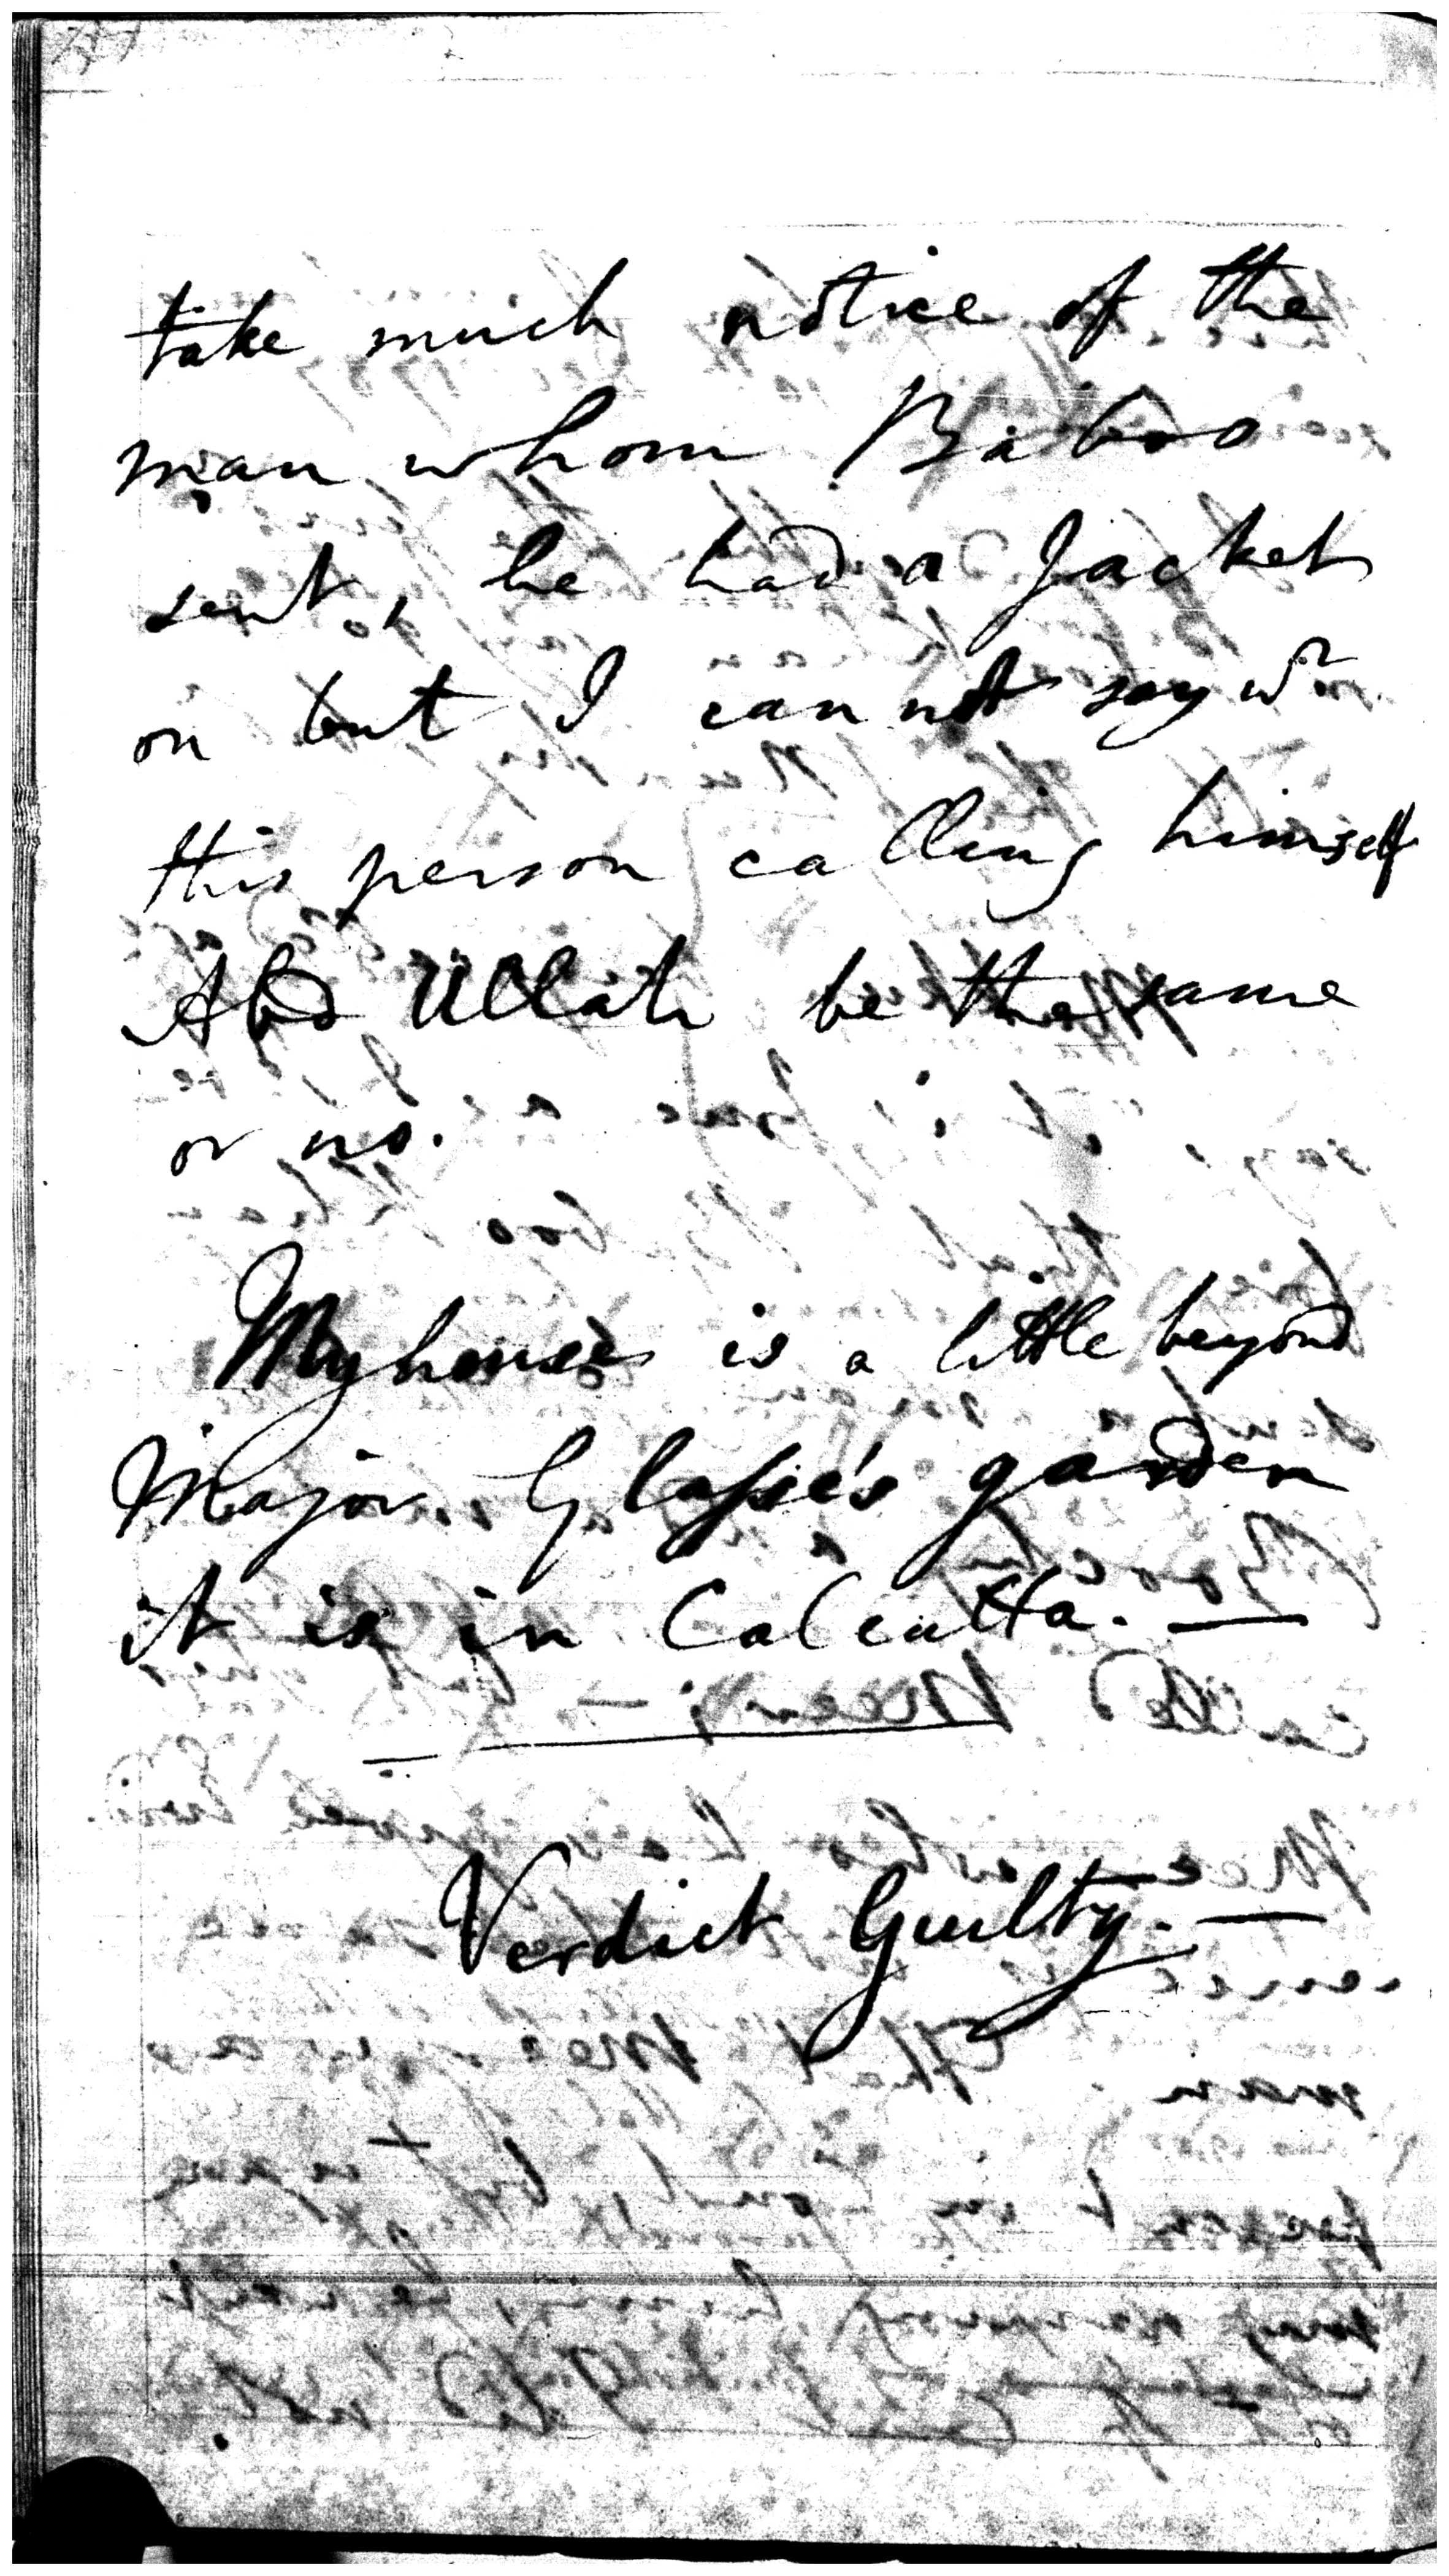 take much notice of the
man whom Baboo
sent, he had a Jacket
on but I cannot say wr
this person calling himself
Abd Ullah be the same
or no.
My house is a little beyond
Major Glasse's garden
it is in Calcutta. —
Verdict Guilty. —